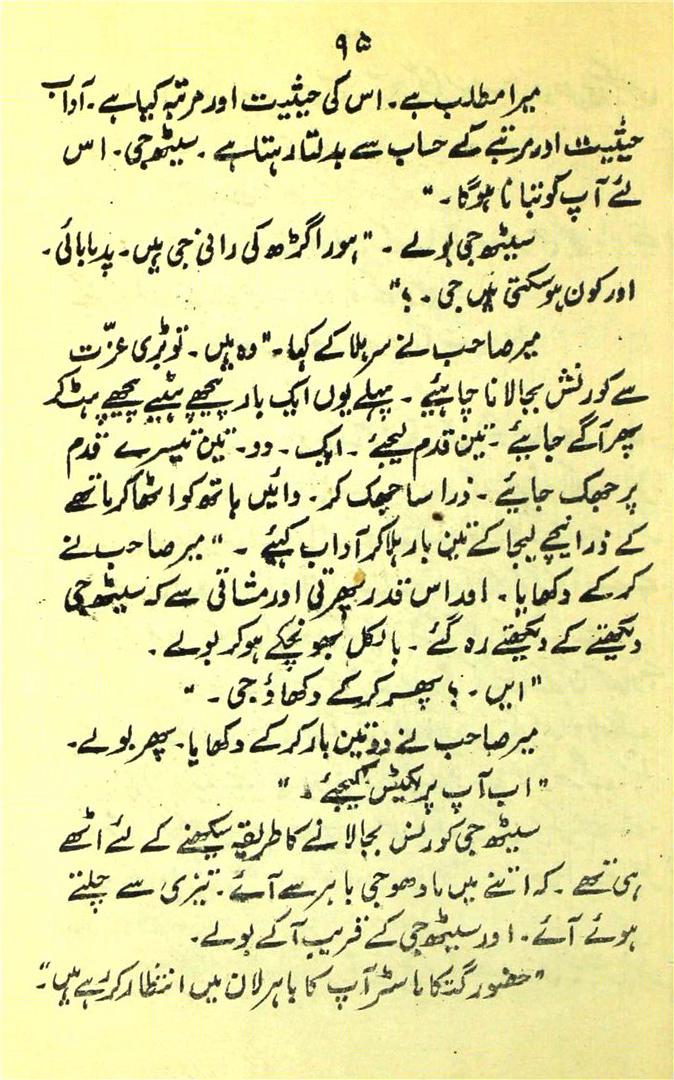 ۹۵
میرا مطلب ہے۔ اس کی حیثیت اور مرتبہ کیا ہے۔ آداب
حیثیت اور مرتبے کے حساب سے بدلتا رہتا ہے۔ سیٹھ جی۔ اس
لئے آپ کو بتانا ہوگا۔"
سیٹھ جی بولے۔ "ہوراگڑھ کی رانی جی ہیں۔ پدمابائی۔
اور کون ہو سکتی ہیں جی۔؟"
میر صاحب نے سر ہلا کے کہا۔ "وہ ہیں۔ تو بڑی عزّت
سے کورنش بجا لانا چاہیئے۔ پہلے یوں ایک بار پیچھے ہٹیے پیچھے ہٹ کر
پھر آگے جایئے۔ تین قدم لیجئے۔ ایک۔ دو۔ تین تیسرے قدم
پر جھک جایئے۔ ذرا سا جھک کر۔ دائیں ہاتھ کو اٹھا کر ماتھے
کے ذرا نیچے لیجا کے تین بار ہلا کر آداب کہئے۔" میر صاحب نے
کر کے دکھایا۔ اور اس قدر پھرتی اور مشاقی سے کہ سیٹھ جی
دیکھتے کے دیکھتے رہ گئے۔ بالکل بھونچکے ہو کر بولے۔
"ایں۔؟ پھر کر کے دکھاؤ جی۔"
میر صاحب نے دو تین بار کر کے دکھایا۔ پھر بولے۔
"اب آپ پریکٹس کیجئے۔"
سیٹھ جی کورنش بجا لانے کا طریقہ سیکھنے کے لئے اٹھے
ہی تھے۔ کہ اتنے میں مادھو جی باہر سے آئے۔ تیزی سے چلتے
ہوئے آئے۔ اور سیٹھ جی کے قریب آ کے بولے۔
"حضور گتکا ماسٹر آپ کا باہر لان میں انتظار کر رہے ہیں۔"